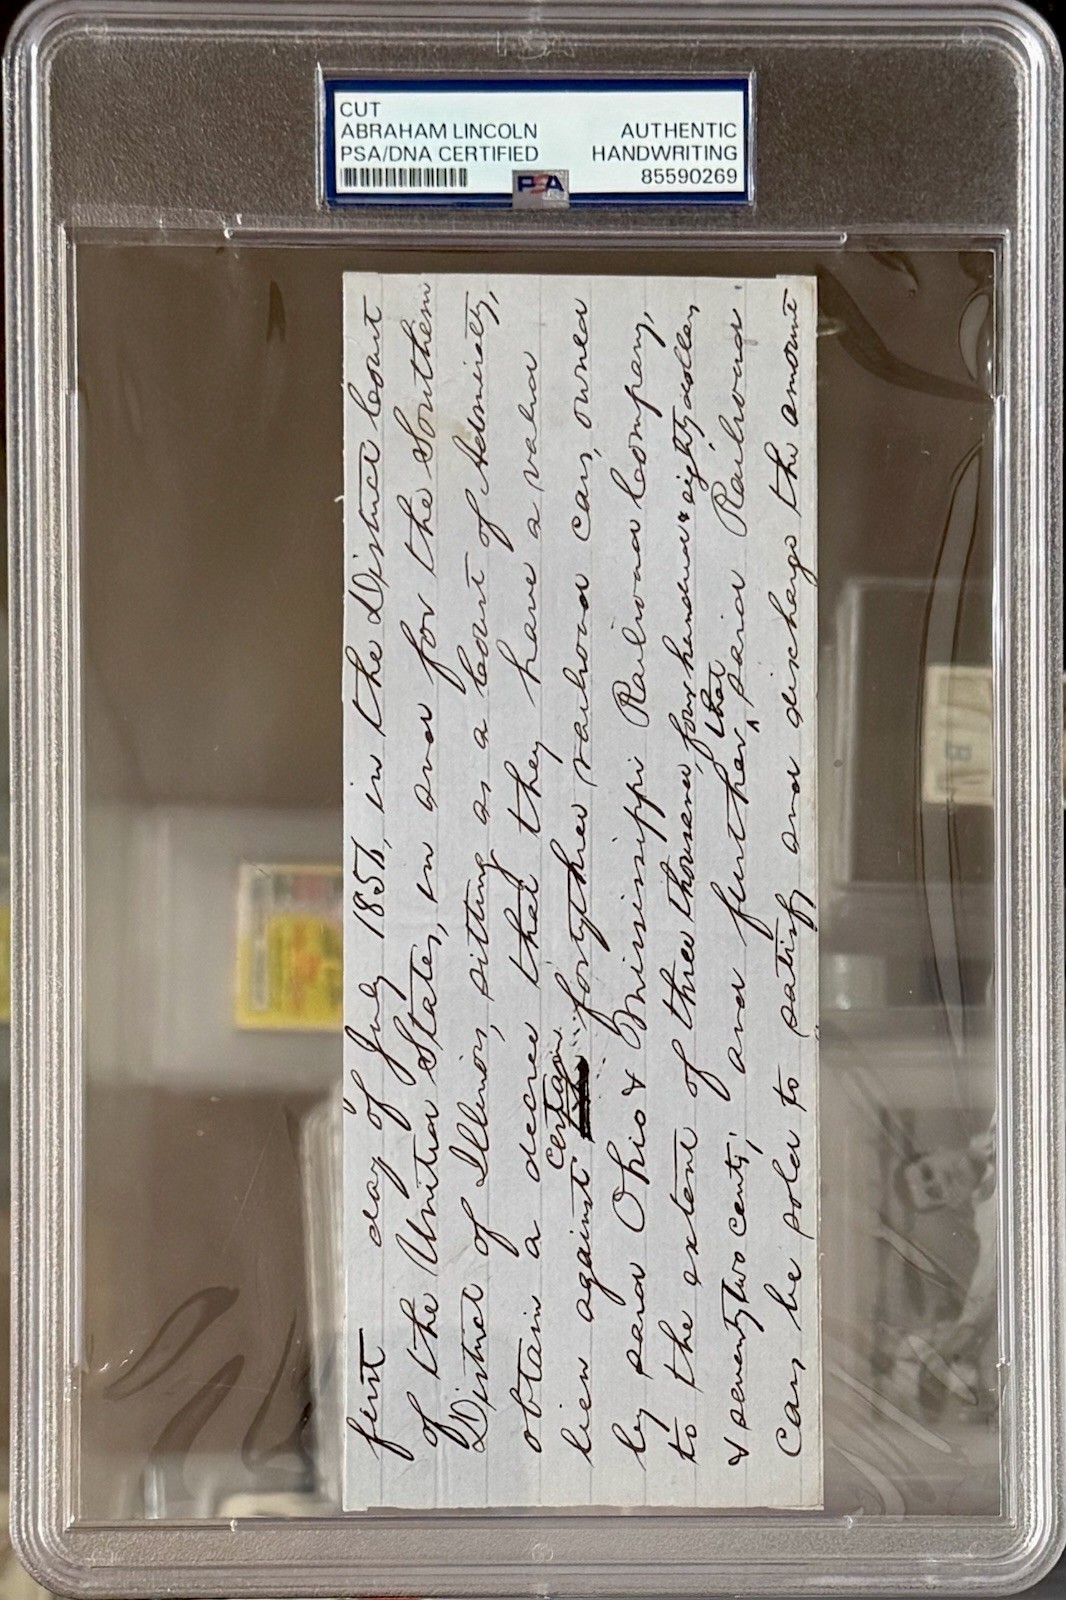 CUT
ABRAHAM LINCOLN AUTHENTIC
PSA/DNA CERTIFIED HANDWRITING
PSA 85590269
first day of July 1856, in the District Court
of the United States, in and for the Southern
District of Illinois, sitting as a Court of Admiralty,
obtain a decree that they have a valid
lien against certain fortythree railroad cars, owned
by said Ohio & Mississippi Railroad Company,
to the extent of three thousand four hundred & eighty dollars
& seventytwo cents; and further that said Railroad
Cars be sold to satisfy and discharge the amount